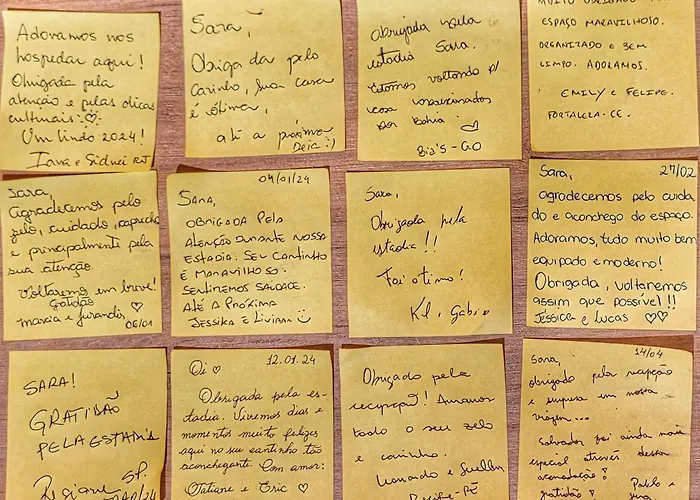 Adoramos nos
hospedar aqui!
Obrigada pela
atenção e pelas dicas
culturais.
Um lindo 2024!
Iara e Sidnei RJ
Sara,
Obrigada pelo
carinho, sua casa
é ótima,
até a próxima
Deia :)
Obrigada pela
estadia Sara.
Estamos voltando p/
casa
por Bahia.
Bia's - GO
ESPAÇO MARAVILHOSO.
ORGANIZADO E BEM
LIMPO. ADORAMOS.
EMILY E FELIPE.
FORTALEZA-CE.
Sara,
Agradecemos pelo
zelo, cuidado, capricho
e principalmente pela
sua atenção.
Voltaremos em breve!
Gratidão
Marcia e Jurandir
06/01
04/01/24
SARA,
OBRIGADA PELA
ATENÇÃO DURANTE NOSSA
ESTADIA. SEU CANTINHO
É MARAVILHOSO.
SENTIREMOS SAUDADE.
ATÉ A PRÓXIMA
JESSIKA E LIVIAN
Sara,
Obrigada pela
estadia!!
Foi otimo!
Kel e Gabi
27/02
Sara,
agradecemos pelo cuida
do e aconchego do espaço.
Adoramos, tudo muito bem
equipado e moderno!
Obrigada, voltaremos
assim que possível!!
Jéssica e Lucas
SARA!
GRATIDÃO
PELA ESTADIA
Regiane SP.
12.01.24
Oi
Obrigada pela es-
tadia. Vivemos dias e
momentos muito felizes
aqui no seu cantinho tão
aconchegante. Com amor:
Tatiane e Eric
Obrigado pela
recepção! Amamos
todo o seu zelo
e carinho.
Leonardo e Suellen
Recife-PE
14/04
Sara,
obrigado pela recepção
e surpresa em nossa
viagem...
Salvador foi ainda mais
especial através dessa
acomodação!
gratidão! Pablo e